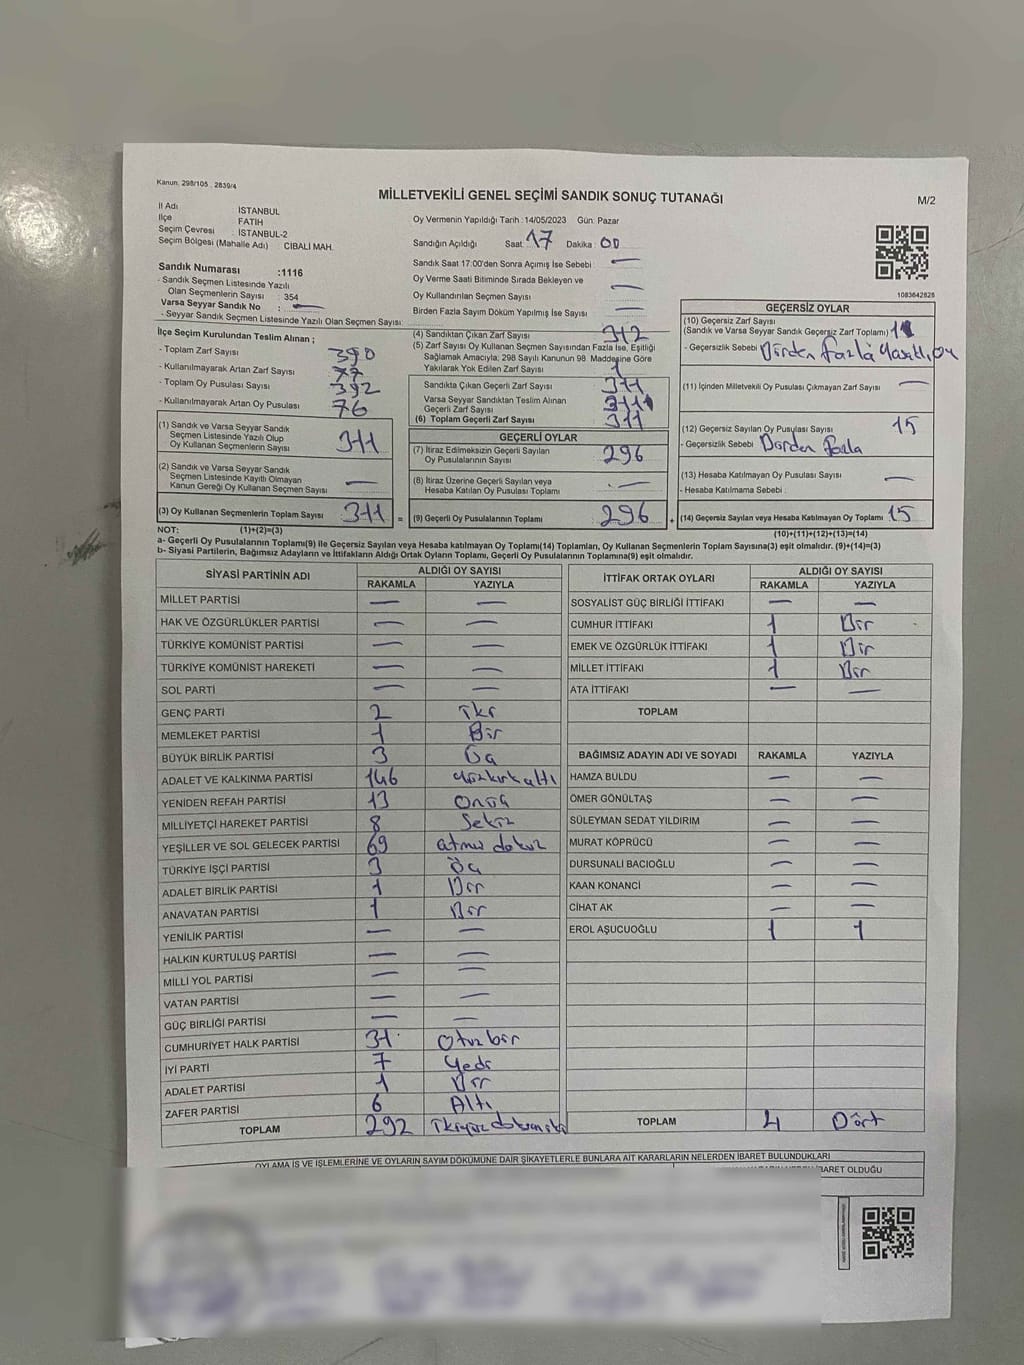 Kanun: 298/105 , 2839/4
MİLLETVEKİLİ GENEL SEÇİMİ SANDIK SONUÇ TUTANAĞI
M/2
İl Adı : İSTANBUL
İlçe : FATİH
Seçim Çevresi : İSTANBUL-2
Seçim Bölgesi (Mahalle Adı) CİBALİ MAH.
Sandık Numarası :1116
- Sandık Seçmen Listesinde Yazılı
Olan Seçmenlerin Sayısı : 354
Varsa Seyyar Sandık No : —
- Seyyar Sandık Seçmen Listesinde Yazılı Olan Seçmen Sayısı:
Oy Vermenin Yapıldığı Tarih : 14/05/2023 Gün: Pazar
Sandığın Açıldığı Saat : 17 Dakika : 00
Sandık Saat 17:00'den Sonra Açımış İse Sebebi : —
Oy Verme Saati Bitiminde Sırada Bekleyen ve
Oy Kullandırılan Seçmen Sayısı —
Birden Fazla Sayım Döküm Yapılmış İse Sayısı —
1083642826
İlçe Seçim Kurulundan Teslim Alınan ;
- Toplam Zarf Sayısı 390
- Kullanılmayarak Artan Zarf Sayısı 77
- Toplam Oy Pusulası Sayısı 392
- Kullanılmayarak Artan Oy Pusulası 76
(1) Sandık ve Varsa Seyyar Sandık
Seçmen Listesinde Yazılı Olup
Oy Kullanan Seçmenlerin Sayısı 311
(2) Sandık ve Varsa Seyyar Sandık
Seçmen Listesinde Kayıtlı Olmayan
Kanun Gereği Oy Kullanan Seçmen Sayısı —
(3) Oy Kullanan Seçmenlerin Toplam Sayısı 311 =
(4) Sandıktan Çıkan Zarf Sayısı 312
(5) Zarf Sayısı Oy Kullanan Seçmen Sayısından Fazla İse, Eşitliği
Sağlamak Amacıyla; 298 Sayılı Kanunun 98. Maddesine Göre
Yakılarak Yok Edilen Zarf Sayısı 1
Sandıkta Çıkan Geçerli Zarf Sayısı 311
Varsa Seyyar Sandıktan Teslim Alınan
Geçerli Zarf Sayısı
(6) Toplam Geçerli Zarf Sayısı 311
GEÇERLİ OYLAR
(7) İtiraz Edilmeksizin Geçerli Sayılan
Oy Pusulalarının Sayısı 296
(8) İtiraz Üzerine Geçerli Sayılan veya
Hesaba Katılan Oy Pusulası Toplamı —
(9) Geçerli Oy Pusulalarının Toplamı 296 +
GEÇERSİZ OYLAR
(10) Geçersiz Zarf Sayısı
(Sandık ve Varsa Seyyar Sandık Geçersiz Zarf Toplamı)
- Geçersizlik Sebebi
(11) İçinden Milletvekili Oy Pusulası Çıkmayan Zarf Sayısı —
(12) Geçersiz Sayılan Oy Pusulası Sayısı 15
- Geçersizlik Sebebi : Birden Fazla
(13) Hesaba Katılmayan Oy Pusulası Sayısı —
- Hesaba Katılmama Sebebi :
(14) Geçersiz Sayılan veya Hesaba Katılmayan Oy Toplamı 15
NOT: (1)+(2)=(3) (10)+(11)+(12)+(13)=(14)
a- Geçerli Oy Pusulalarının Toplamı(9) ile Geçersiz Sayılan veya Hesaba katılmayan Oy Toplamı(14) Toplamları, Oy Kullanan Seçmenlerin Toplam Sayısına(3) eşit olmalıdır. (9)+(14)=(3)
b- Siyasi Partilerin, Bağımsız Adayların ve İttifakların Aldığı Ortak Oyların Toplamı, Geçerli Oy Pusulalarının Toplamına(9) eşit olmalıdır.
SİYASİ PARTİNİN ADI ALDIĞI OY SAYISI
RAKAMLA YAZIYLA
MİLLET PARTİSİ — —
HAK VE ÖZGÜRLÜKLER PARTİSİ — —
TÜRKİYE KOMÜNİST PARTİSİ — —
TÜRKİYE KOMÜNİST HAREKETİ — —
SOL PARTİ — —
GENÇ PARTİ 2 iki
MEMLEKET PARTİSİ 1 Bir
BÜYÜK BİRLİK PARTİSİ 3 Üç
ADALET VE KALKINMA PARTİSİ 146 yüzkırkaltı
YENİDEN REFAH PARTİSİ 13 Onüç
MİLLİYETÇİ HAREKET PARTİSİ 8 Sekiz
YEŞİLLER VE SOL GELECEK PARTİSİ 69 atmış dokuz
TÜRKİYE İŞÇİ PARTİSİ 3 Üç
ADALET BİRLİK PARTİSİ 1 Bir
ANAVATAN PARTİSİ 1 Bir
YENİLİK PARTİSİ — —
HALKIN KURTULUŞ PARTİSİ — —
MİLLİ YOL PARTİSİ — —
VATAN PARTİSİ — —
GÜÇ BİRLİĞİ PARTİSİ — —
CUMHURİYET HALK PARTİSİ 31 Otuz bir
İYİ PARTİ 7 Yedi
ADALET PARTİSİ 1 Bir
ZAFER PARTİSİ 6 Altı
TOPLAM 292 ikiyüz doksan iki
İTTİFAK ORTAK OYLARI ALDIĞI OY SAYISI
RAKAMLA YAZIYLA
SOSYALİST GÜÇ BİRLİĞİ İTTİFAKI — —
CUMHUR İTTİFAKI 1 Bir
EMEK VE ÖZGÜRLÜK İTTİFAKI 1 Bir
MİLLET İTTİFAKI 1 Bir
ATA İTTİFAKI — —
TOPLAM
BAĞIMSIZ ADAYIN ADI VE SOYADI RAKAMLA YAZIYLA
HAMZA BULDU — —
ÖMER GÖNÜLTAŞ — —
SÜLEYMAN SEDAT YILDIRIM — —
MURAT KÖPRÜCÜ — —
DURSUNALİ BACIOĞLU — —
KAAN KONANCİ — —
CİHAT AK — —
EROL AŞUCUOĞLU 1 1
TOPLAM 4 Dört
OYLAMA İŞ VE İŞLEMLERİNE VE OYLARIN SAYIM DÖKÜMÜNE DAİR ŞİKAYETLERLE BUNLARA AİT KARARLARIN NELERDEN İBARET BULUNDUKLARI
İBARET OLDUĞU